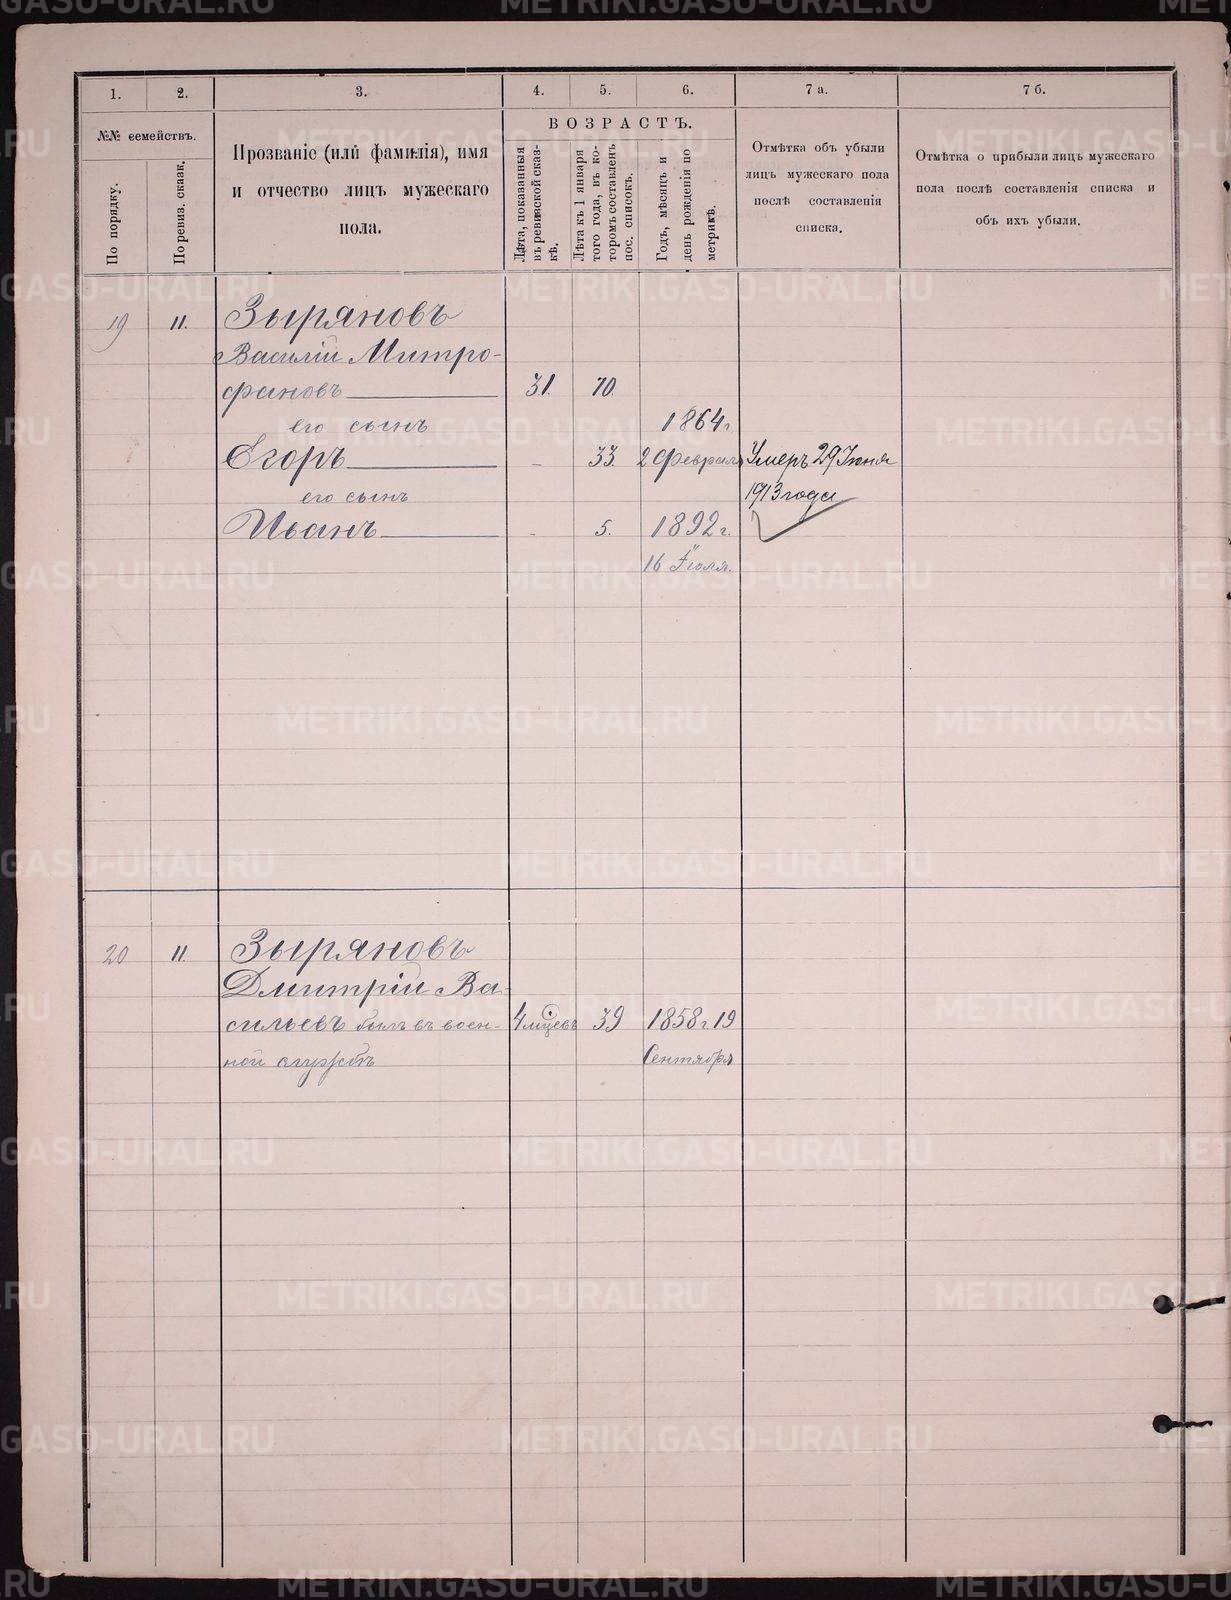 1.
2.
3.
4.
5.
6.
7 а.
7 б.
№№ семействъ.
По порядку.
По ревиз. сказк.
Прозваніе (или фамилія), имя
и отчество лицъ мужескаго
пола.
ВОЗРАСТЪ.
Лѣта, показанныя
въ ревизской сказ-
кѣ.
Лѣта къ 1 января
того года, въ ко-
торомъ составленъ
пос. списокъ.
Годъ, мѣсяцъ и
день рожденія по
метрикѣ.
Отмѣтка объ убыли
лицъ мужескаго пола
послѣ составленія
списка.
Отмѣтка о прибыли лицъ мужескаго
пола послѣ составленія списка и
объ ихъ убыли.
19 11. Зыряновъ
Василій Митро-
фановъ 31. 70.
его сынъ 1864 г.
Егоръ - 33. 2 Февраля Умеръ 29 Іюня
его сынъ 1913 года
Иванъ - 5. 1892 г.
16 Іюля.
20 11. Зыряновъ
Дмитрій Ва-
сильевъ былъ въ воен- 4 мѣсяцевъ 39 1858 г. 19
ной службѣ Сентября
METRIKI.GASO-URAL.RU